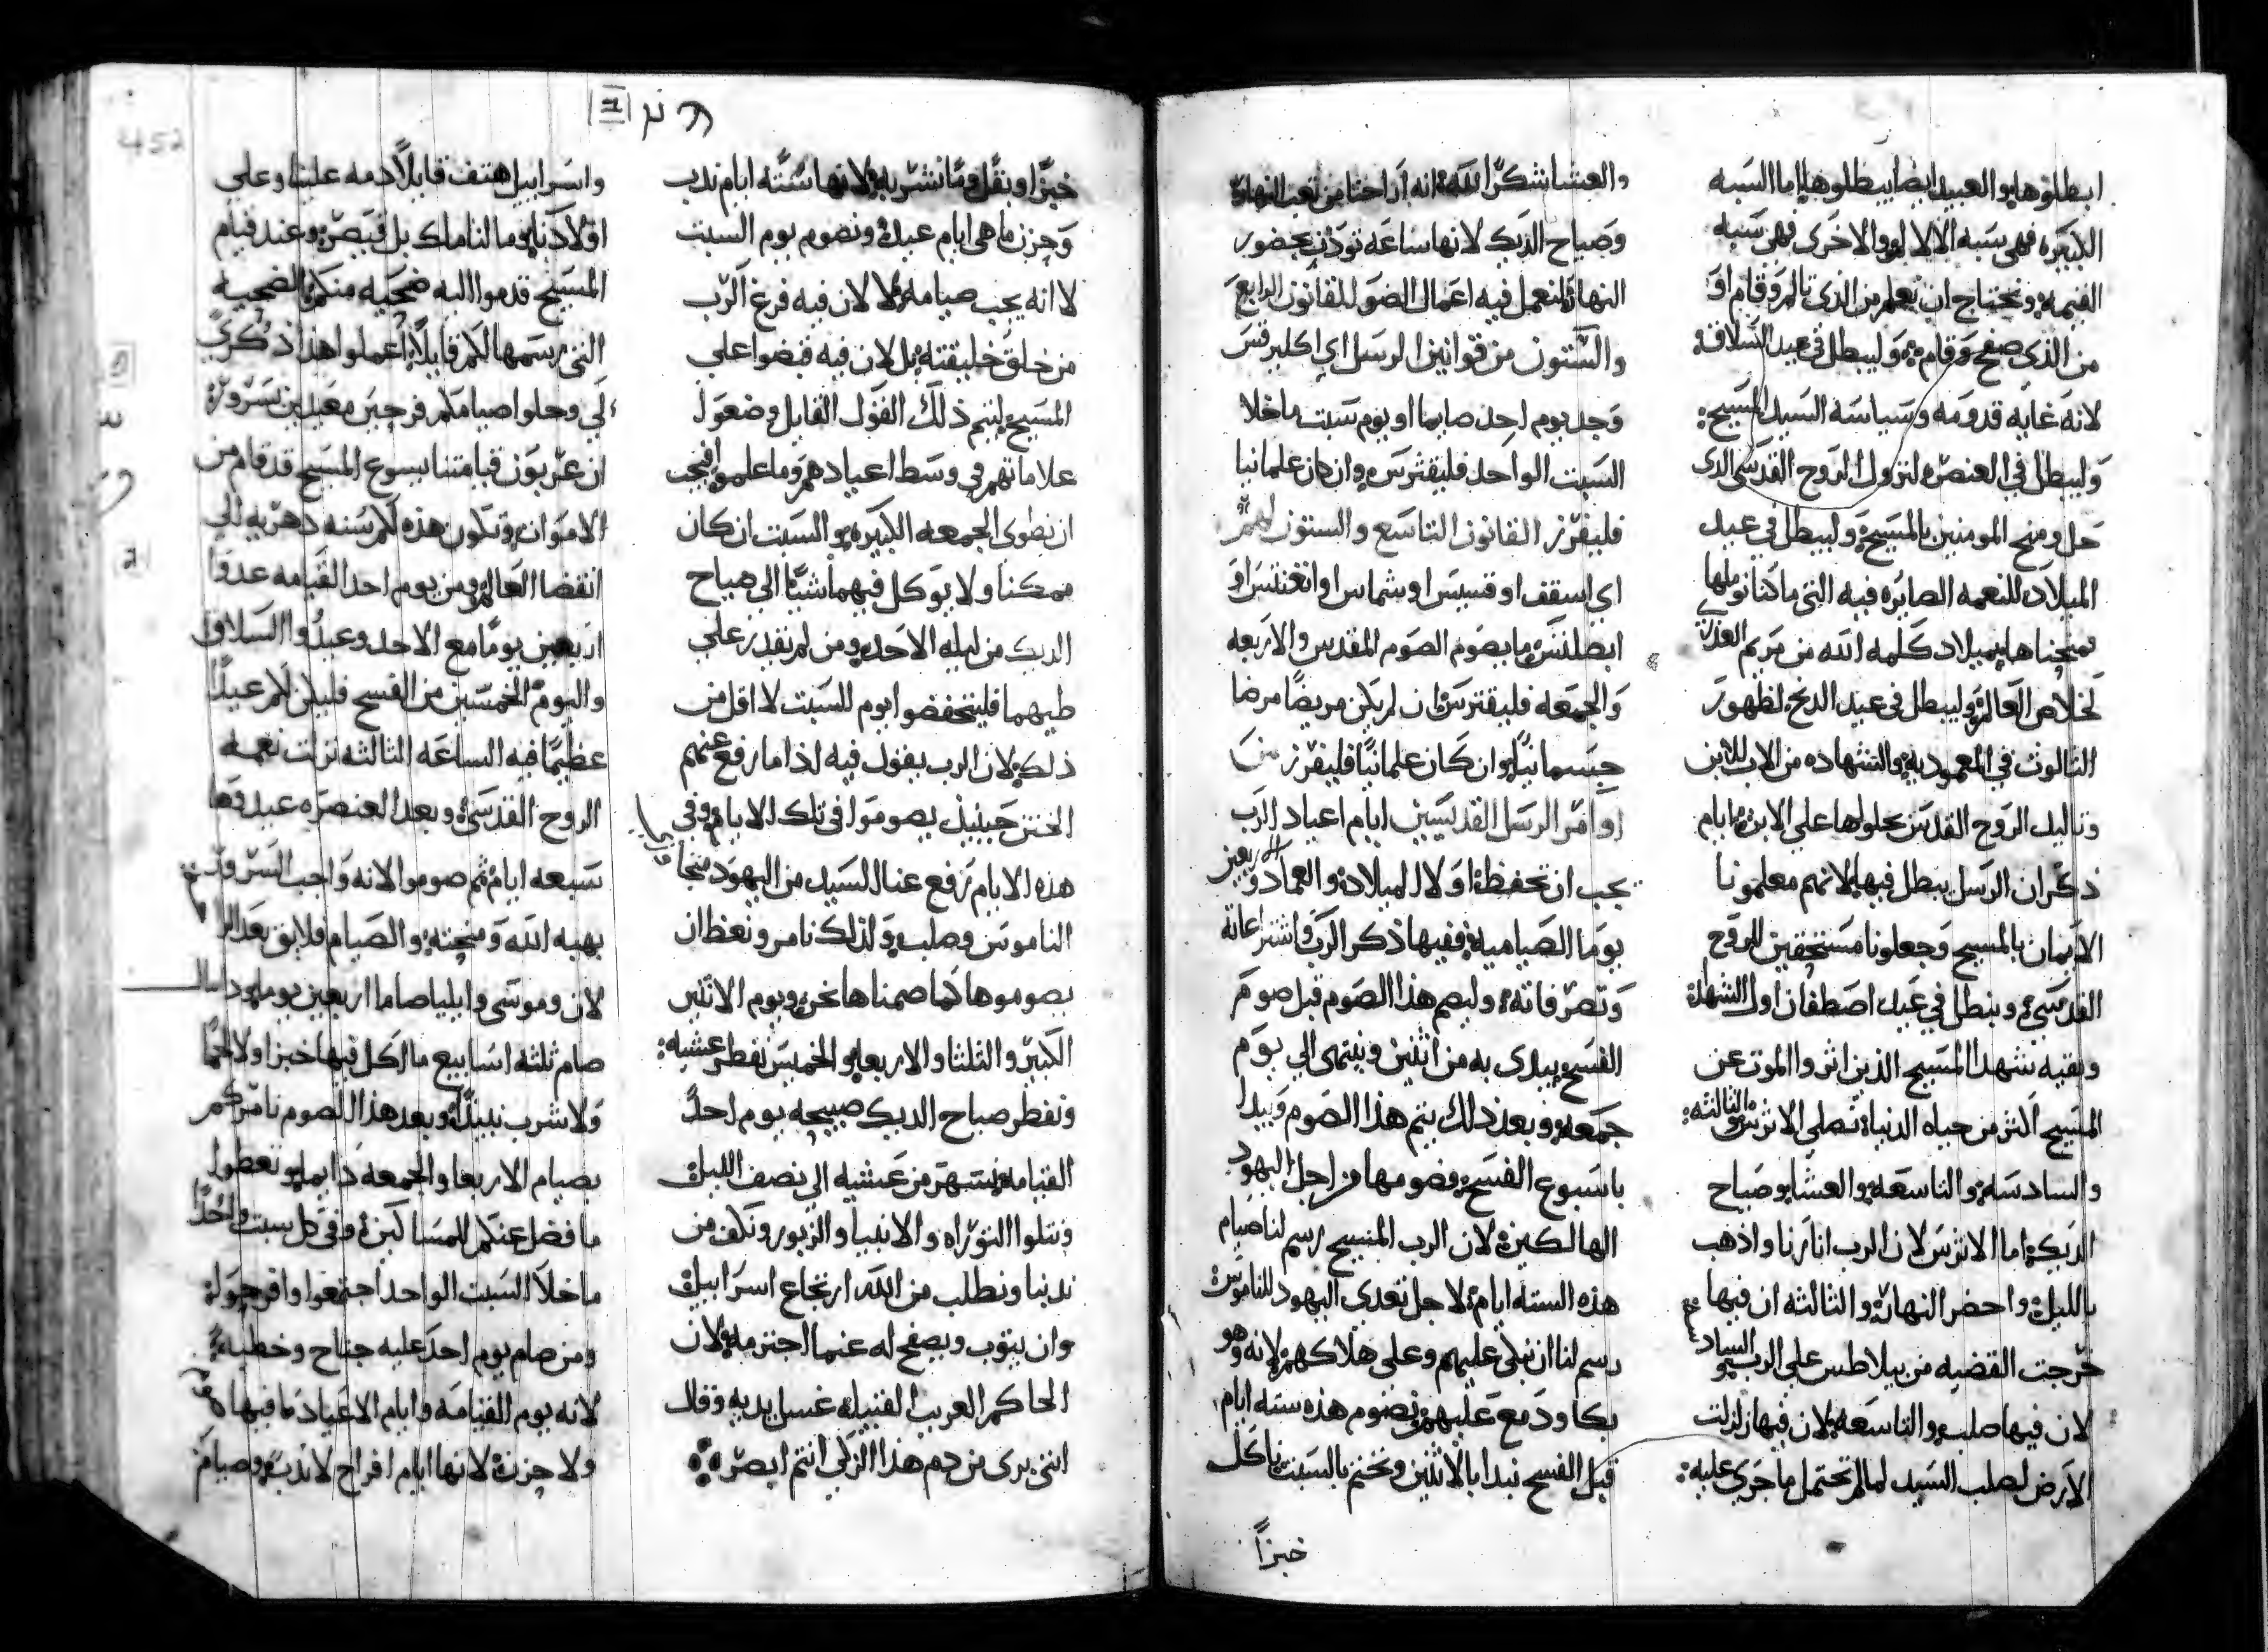 ابطلوها والعبيد ايضا يبطلوها اما السبه
الكبيره فهي سبه الالام والاخرى فهي سبه
القيمه ونحتاج ان نعلم من الذي تالم وقام او
من الذي صفح وقام وليبطل في عيد السلاق
لانه غايه قدومه وسياسه السيد المسيح
وليبطل في العنصره لنزول الروح القدس الدى
حل ومنح المومنين بالمسيح وليبطل في عيد
الميلاد للنعمه الصايره فيه التي ما كنا نوملها
فمنحناها بميلاد كلمه الله من مريم العذرى
لخلاص العالم وليبطل في عيد الدنح لظهور
الثالوث في المعموديه والشهاده من الاب للابن
وتاليد الروح القدس بحلولها على الابن وايام
ذكران الرسل يبطل فيها لانهم معلمونا
الايمان بالمسيح وجعلونا مستحقين للروح
القدسي ونبطل في عيد اصطفان اول الشهدا
وبقيه شهدا المسيح الذين اثروا الموت عن
المسيح اكثر من حياه الدنيا تصلي الاثرس والثالثه
والسادسه والتاسعه والعشا وصباح
الديك اما الاثرس لان الرب انارنا واذهب
بالليل واحضر النهار والثالثه ان فيها
خرجت القضيه من بيلاطس على الرب والسادسه
لان فيها صلب والتاسعه لان فيها زلزلت
الارض لصلب السيد لما لم تحتمل ما جرى عليه
والعشا شكرا لله انه اراحنا من تعب النهار
وصباح الديك لانها ساعه توذن بحضور
النهار لنعمل فيه اعمال الضو القانون الرابع
والستون من قوانين الرسل اي اكليرقس
وجد يوم احد صايما او يوم سبت ما خلا
السبت الواحد فليقترس وان كان علمانيا
فليفرز القانون التاسع والستون لهم
اي اسقف او قسيس او شماس او اغنسطس او
ابصلتس ما يصوم الصوم المقدس والاربعه
والجمعه فليقترس ان لم يكن مريضا مرضا
جسمانيا وان كان علمانيا فليفرز من
اوامر الرسل القديسين ايام اعياد الرب
يجب ان تحفظ اولا الميلاد والعماد واربعين
يوما الصياميه ففيها ذكر الرب واشتراعاته
وتصرفاته وليصم هذا الصوم قبل صوم
الفسح يبدى به من اثنين وينتهى الي يوم
جمعه وبعد ذلك يتم هذا الصوم ويبدا
باسبوع الفسح فصومها من اجل اليهود
الهالكين لان الرب المسيح رسم لنا صيام
هذه الستة ايام لاجل تعدي اليهود للناموس
رسم لنا ان نبكي عليهم وعلى هلاكهم لانه وهو
بكا ودمع عليهم نصوم هذه سته ايام
قبل الفسح نبدا بالاثنين ونختم بالسبت ناكل
خبزا
خبزا وبقل وما نشربه لانها سته ايام ندب
وحزن ما هي ايام عيد ونصوم يوم السبت
لا انه يجب صيامه لا لان فيه فرغ الرب
من خلق خليقته بل لان فيه قبضوا على
المسيح ليتم ذلك القول القايل وضعوا
علاماتهم في وسط اعيادهم وما علموا فيجب
ان نطوى الجمعه الكبيره والسبت ان كان
ممكنا ولا يوكل فيهما شيا الى صباح
الديك من ليله الاحد ومن لم يقدر على
طيهما فليتحفضوا يوم السبت لا اقل من
ذلك لان الرب يقول فيه اذا ما رفع عنهم
الختن حينيذ يصوموا في تلك الايام وفي
هذه الايام رفع عنا السيد من اليهود
الناموس وصلب ولذلك نامر ونعظ ان
يصوموها كما صمناها نحن ويوم الاثنين
الكبير والثلثا والاربعا والخميس نفطر عشيه
ونفطر صباح الديك صبيحه يوم احد
القيامه ونسهر من عشيه الى نصف الليل
ونتلوا التوراه والانبيا والزبور ونكف من
ندبنا ونطلب من الله ارتجاع اسراييل
وان يتوب ويصفح له عنما اجترمه لان
الحاكم الغريب القبيله غسل يديه وقال
انني برى من دم هذا الزكي انتم ابصر
واسراييل هتف قايلا دمه علينا وعلى
اولادنا وما لنا ملك بل قيصر وعند قيام
المسيح قدموا اليه ضحيه منكم الضحيه
التي رسمها لكم قايلا اعملوا هذا ذكرى
لي وحلوا صيامكم فرحين معيدين مسرورين
ان عربون قيامتنا يسوع المسيح قد قام من
الاموات وتكون هذه لكم سنه دهريه الي
انقضا العالم ومن يوم احد القيامه عدوا
اربعين يوما مع الاحد وعيدوا السلاق
واليوم الخمسين من الفسح فليكن لكم عيدا
عظيما فيه الساعه الثالثه نزلت نعمه
الروح القدسي وبعد العنصره عيدوها
سبعه ايام ثم صوموا لانه واجب السرور
بهبه الله ومنحته والصيام فلايق بعد
لان موسى وايليا صاما اربعين يوما ودانيال
صام ثلثه اسابيع ما اكل فيها خبزا ولا لحما
ولا شرب نبيذا وبعد هذا الصوم نامركم
بصيام الاربعا والجمعه دايما وتعطوا
ما فضل عنكم للمساكين وفي كل سبت واحدا
ما خلا السبت الواحد اجتمعوا وافرحوا
ومن صام يوم احد عليه جناح وخطيه
لانه يوم القيامه وايام الاعياد ما فيها هم
ولا حزن لانها ايام افراح لا ندب وصيام
452